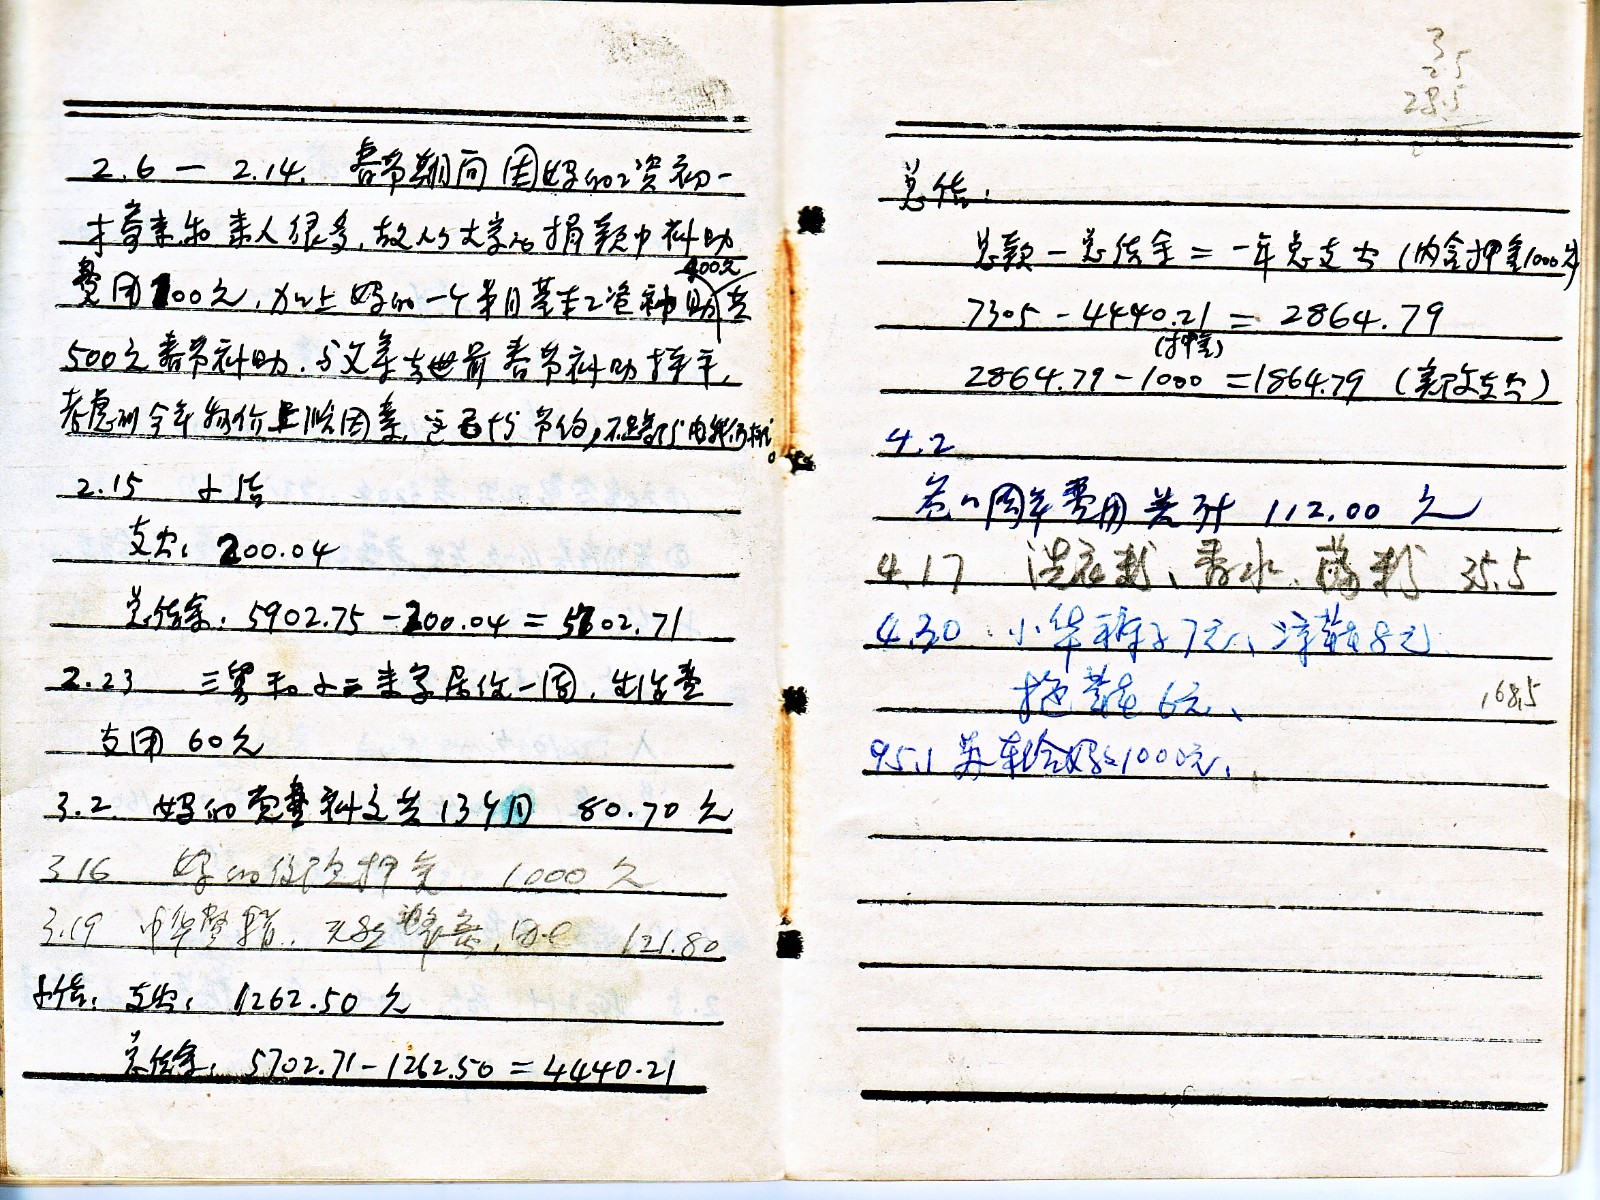 2.6 — 2.14. 春节期间因妈的工资初一
才寄来和来人很多,故从大家的捐款中补助
费用200元,加上妈的一个半月基本工资补助共
400元
500元春节补助.与父亲去世前春节补助持平,
考虑到今年物价上涨因素,
2.15 小结
支出:200.04
总结余:5902.75 - 200.04 = 5702.71
2.23 三舅和小二来家居住一周,生活费
支用 60元
3.2 妈的党费补交共13个月 80.70元
3.16 妈的住院押金 1000元
3.19 中华鳖精、 121.80
小结:支出:1262.50元
总结余:5702.71 - 1262.50 = 4440.21
3
2.5
28.5
总结:
总款 - 总结余 = 一年总支出 (内含押金1000元)
7305 - 4440.21 = 2864.79
(押金)
2864.79 - 1000 = 1864.79 (实际支出)
4.2
爸的周年费用共计 112.00 元
4.17 洗衣粉、香水、 35.5
4.30 小华裤子7元、凉鞋8元
拖鞋6元、
168.5
95.1 苏车给妈1000元.